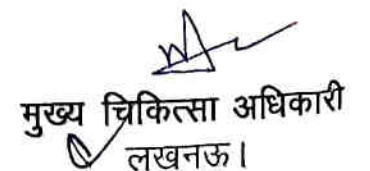 मुख्य चिकित्सा अधिकारी
लखनऊ।